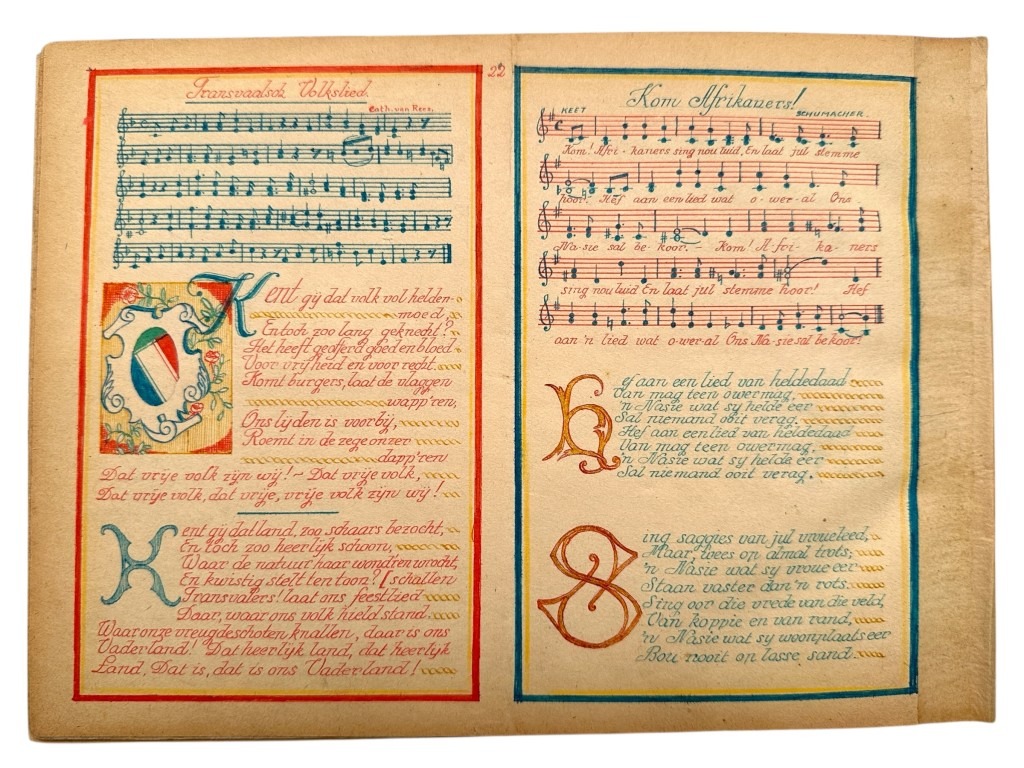 22
Transvaalsch Volkslied.
Cath. van Rees.
Kent gij dat volk vol helden-
moed,
En toch zoo lang geknecht?
Het heeft geofferd goed en bloed
Voor vrijheid en voor recht.
Komt burgers, laat de vlaggen
wapp'ren,
Ons lijden is voorbij,
Roemt in de zege onzer
dapp'ren
Dat vrije volk zijn wij! - Dat vrije volk,
Dat vrije volk, dat vrije, vrije volk zijn wij!
Kent gij dat land, zoo schaars bezocht,
En toch zoo heerlijk schoon,
Waar de natuur haar wond'ren wrocht,
En kwistig stelt ten toon? [schallen
Transvalers! laat ons feestlied
Daar, waar ons volk hield stand.
Waar onze vreugdeschoten knallen, daar is ons
Vaderland! Dat heerlijk land, dat heerlijk
Land, Dat is, dat is ons Vaderland!
Kom Afrikaners!
KEET
SCHUMACHER.
Kom! Afri-kaners sing nou luid, En laat jul stemme
hoor! Hef aan een lied wat o-wer-al Ons
Na-sie sal be-koor. - Kom! A-fri-ka-ners
sing nou luid En laat jul stemme hoor! Hef
aan 'n lied wat o-wer-al Ons Na-sie sal bekoor!
Hef aan een lied van heldedaad
Van mag teen owermag,
'n Nasie wat sy helde eer
Sal niemand ooit verag.
Hef aan een lied van heldedaad
Van mag teen owermag,
'n Nasie wat sy helde eer
Sal niemand ooit verag.
Sing saggies van jul vroueleed,
Maar, wees op almal trots;
'n Nasie wat sy vroue eer
Staan vaster dan 'n rots.
Sing oor die vrede van die veld,
Van koppie en van rand,
'n Nasie wat sy woonplaats eer
Bou nooit op losse sand.